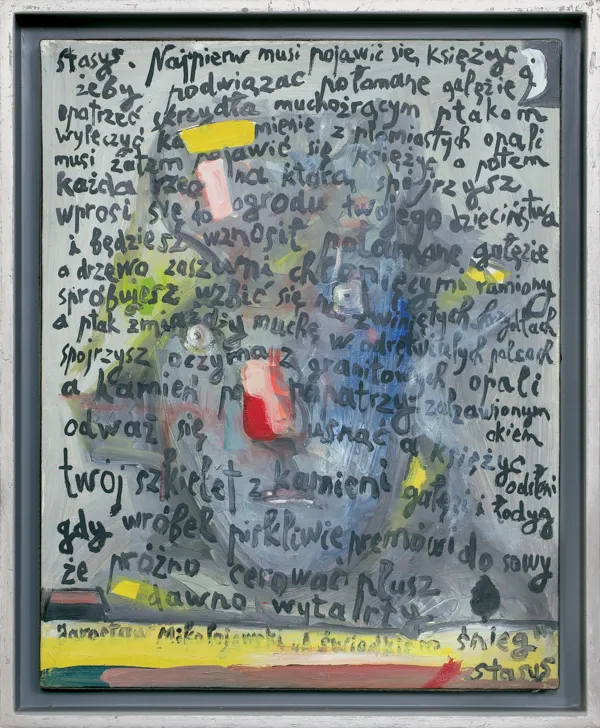 stasys. Najpierw musi pojawić się księżyc
żeby podwiązać połamane gałęzie
opatrzeć skrzydła muchożrącym ptakom
wyleczyć kamienie z płomistych opali
musi zatem pojawić się księżyc a potem
każda rzecz na którą spojrzysz
wprosi się do ogrodu twojego dzieciństwa
i będziesz wznosił połamane gałęzie
a drzewo zaszumi chłopięcymi ramiony
spróbujesz wzbić się na zwiniętych
a ptak zmiażdży muchę w odrętwiałych palcach
spojrzysz oczyma z granitowych opali
a kamień popatrzy załzawionym
odważ się usnąć a okiem
księżyc
twój szkielet z kamieni odsłoni
gałęzi i łodyg
gdy wróbel piskliwie przemówi do sowy
że próżno cerować plusz
dawno wytarty
Jarosław Mikołajewski „A świadkiem śnieg"
stasys